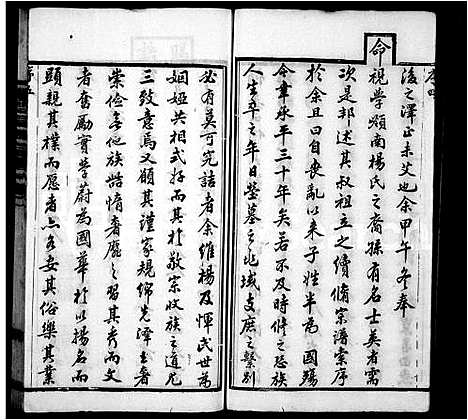 序四
後之澤正未艾也余甲午冬奉
命視學嶺南楊氏之裔孫有名士英者需
次是邦述其叔祖立之續脩宗譜索序
於余且曰自喪亂以來子姓半為國殤
今幸承平三十年矣若不及時脩之恐族
人生卒之年日塋墓之地域支庶之繫別
必有莫可究詰者余維楊及惲氏世為
姻婭共相式好而其於敬宗收族之道尼
三致意焉又願其謹家規綿先澤土著者
崇儉無他族皓惰奢靡之習其秀而文
者奮勵實學蔚為國華於以揚名而
顯親其樸而愿者亦各安其俗樂其業
序五